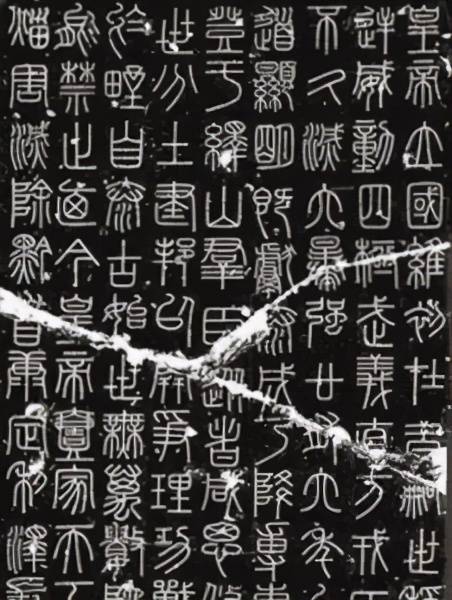 皇帝立國維初在昔嗣世稱
逆威動四極武義直方戎臣
不久滅六暴強廿有六年上
道顯明既獻泰成乃降專惠
登于繹山群臣從者咸思攸
世分土建邦以開爭理功戰
於野自泰古始世無萬數陀
能禁止迺今皇帝壹家天下
災害滅除黔首康定利澤長